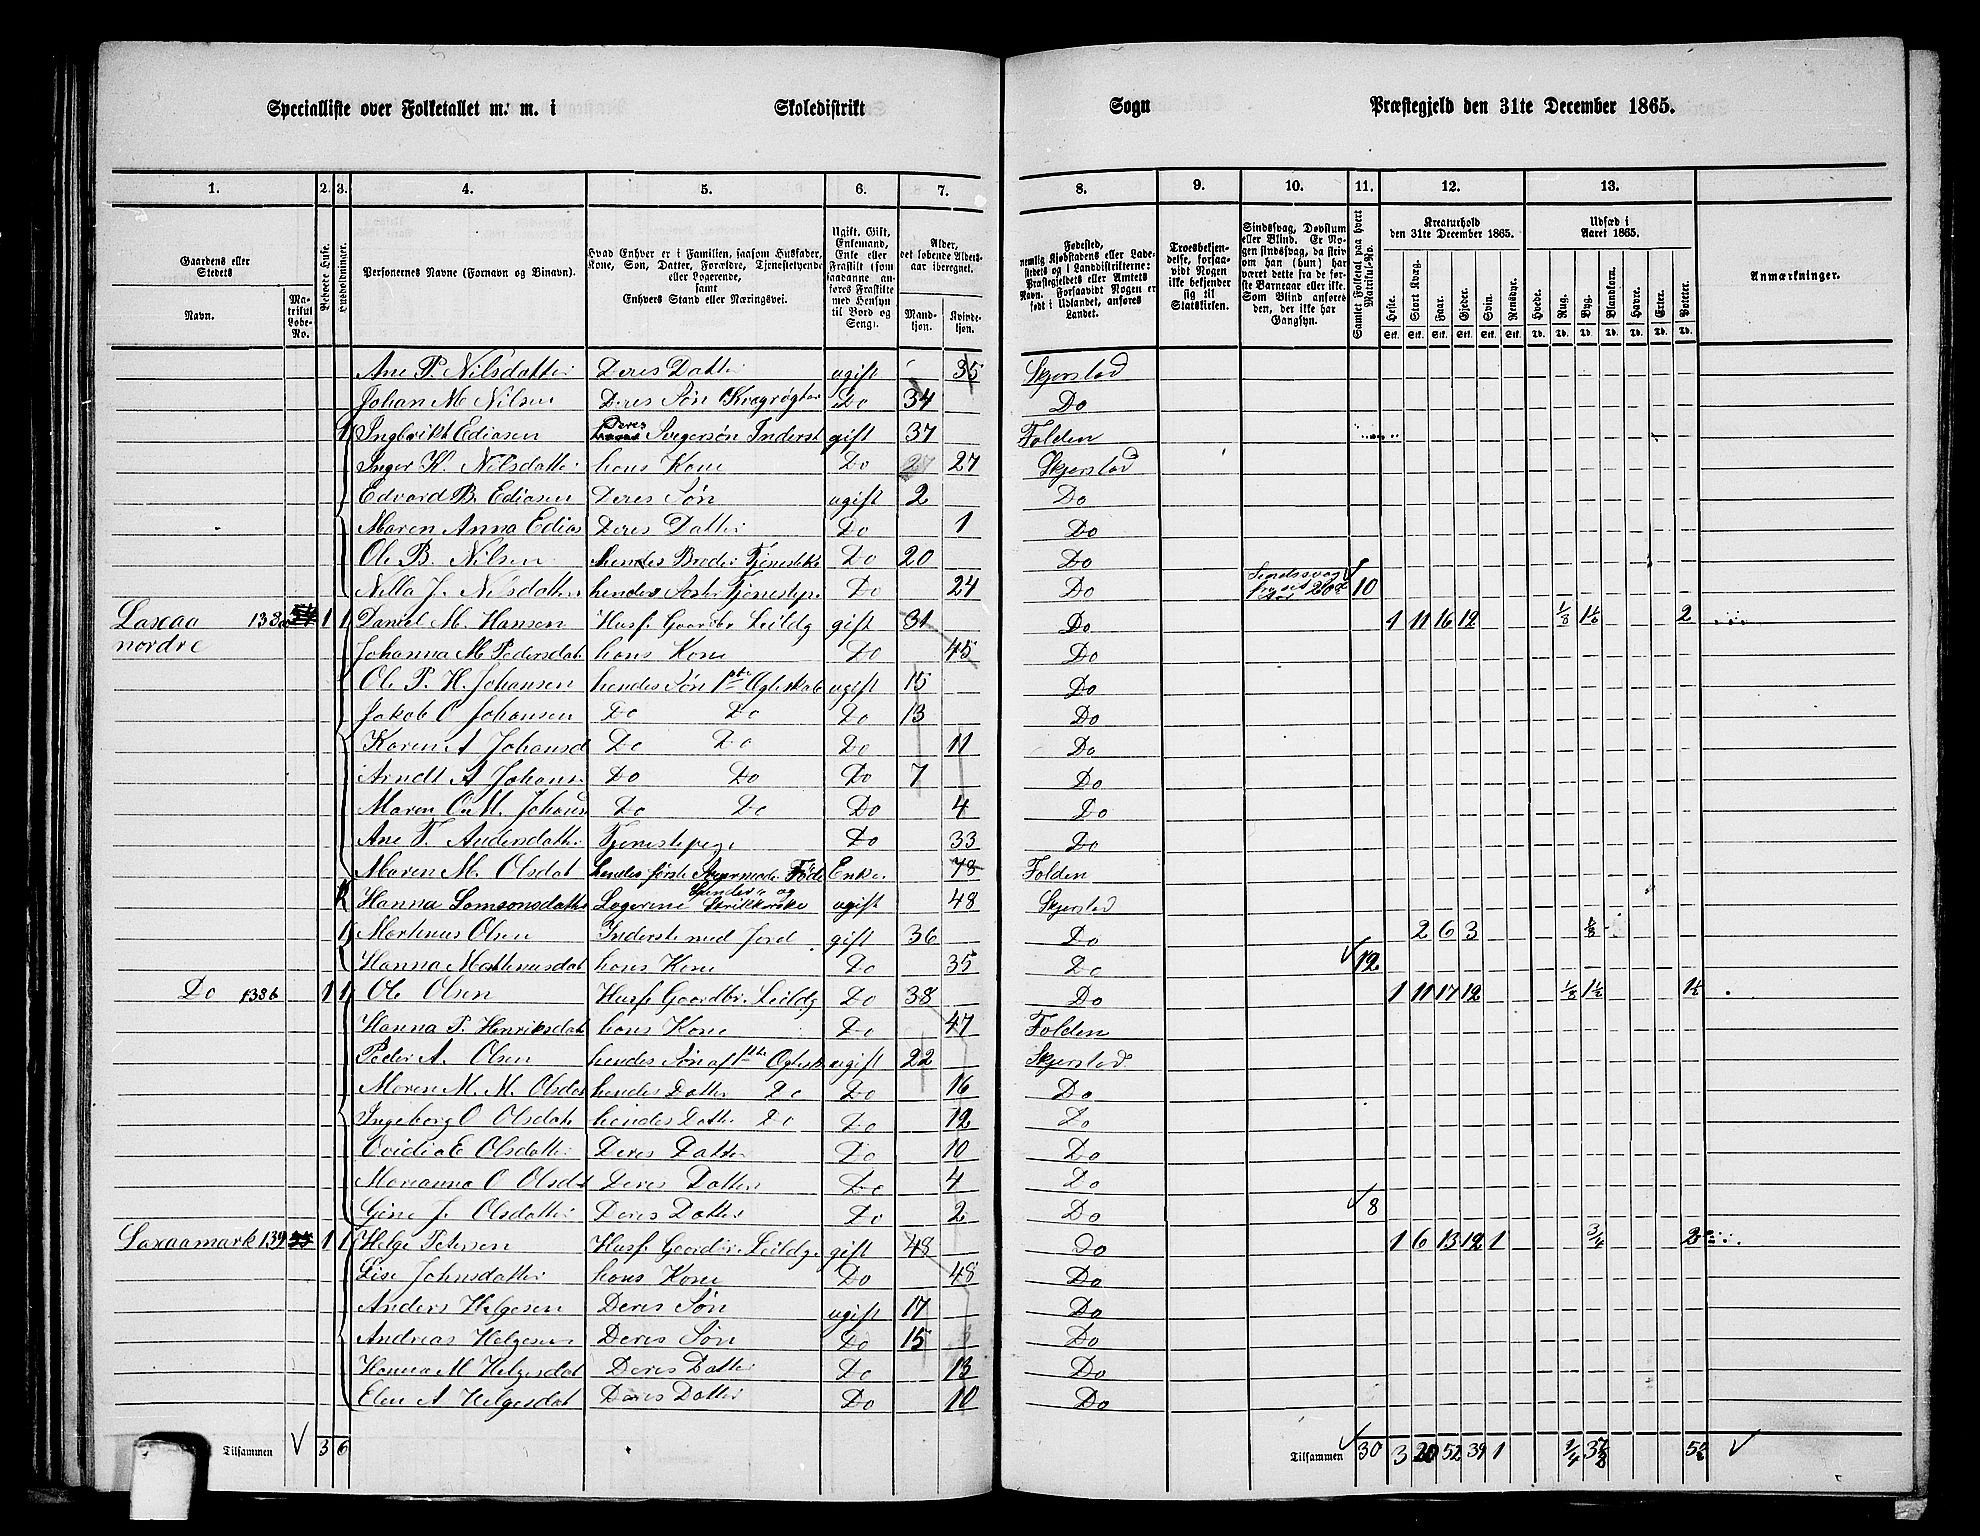 Specialliste over Folketallet m. m. i Skoledistrikt Sogn Præstegjeld den 31te December 1865.
1. 2. 3. 4. 5. 6. 7. 8. 9. 10. 11. 12. 13.
Gaardens eller Stedets
Navn.
Matrikul Løbe-No.
Beboet Huse.
Husholdninger.
Personernes Navne (Fornavn og Binavn).
Hvad Enhver er i Familien, saasom Husfader, Kone, Søn, Datter, Forældre, Tjenestetyende eller Logerende, samt Enhvers Stand eller Næringsvei.
Ugift, Gift, Enkemand, Enke eller Fraskilt (saadanne anføres som Fraskilte med Hensyn til Bord og Seng).
Alder, det løbende Alders-aar iberegnet.
Mandkjøn. Kvindekjøn.
Fødested, nemlig Kjøbstadens eller Ladestedets og i Landdistrikterne: Præstegjeldets eller Amtets Navn. Forsaavidt Nogen er født i Udlandet, anføres Landet.
Troesbekjendelse, forsaavidt Nogen ikke bekjender sig til Statskirken.
Sindssvag, Døvstum eller Blind.
Samlet Folketal paa hvert Matrikul-No.
Kreaturhold den 31te December 1865.
Heste. Stort Kvæg. Faar. Gjeder. Svin. Rensdyr.
Udsæd i Aaret 1865.
Hvede. Rug. Byg. Blandkorn. Havre. Erter. Poteter.
Anmærkninger.
Ane P. Nilsdatter Deres Datter ugift 35 Skjerstad
Johan M Nilsen Deres Søn Kvægrøgter Do 34 Do
1 Ingbrikt Ediasen Deres Svigersøn Inderst gift 37 Folden
Inger K. Nilsdatter hans Kone Do 27 Skjerstad
Edvard B. Ediasen Deres Søn ugift 2 Do
Maren Anna Edias Deres Datter Do 1 Do
Ole B. Nilsen hendes Broder Do 20 Do
Nella J. Nilsdatter hendes Søster Do 24 Do Sindssvag 10
Laxaa nordre 138a 1 1 Daniel M. Hansen Husf. Gaardbr. Leildg gift 31 Do 1 11 16 12 1/8 2
Johanna M Pedersdat hans Kone Do 45 Do
Ole P. H. Johansen hendes Søn 1ste Ægteskab ugift 15 Do
Jakob O Johansen Do Do Do 13 Do
Karen A Johansd Do Do Do 11 Do
Arndt A Johans. Do Do Do 7 Do
Maren O. M. Johansd Do Do Do 4 Do
Ane T. Andersdatter Tjenestepige Do 33 Do
Maren M. Olsdat hendes første Enke 78 Folden
Hanna Samsonsdatter Logerende Spinder og Strikkerske ugift 48 Skjerstad
1 Martinus Olsen Inderst med Jord gift 36 Do 2 6 3
Hanna Matheusdat hans Kone Do 35 Do 12
Do 138b 1 1 Ole Olsen Husf. Gaardbr. Leildg Do 38 Do 1 11 17 12 1/8 1½ 1½
Hanna P. Henriksdat hans Kone Do 47 Folden
Peder A. Olsen hendes Søn af 1ste Ægtesk ugift 22 Skjerstad
Maren M. M. Olsdat hendes Datter Do Do 16 Do
Ingeborg O Olsdat hendes Datter Do Do 12 Do
Ovidia E Olsdatter Deres Datter Do 10 Do
Marianna O Olsdt Deres Datter Do 4 Do
Gine J. Olsdatter Deres Datter Do 2 Do 8
Laxaamark 139 1 1 Helge Petersen Husf. Gaardbr. Leildg. gift 48 Do 1 6 13 12 1 3/4 2
Lise Johnsdatter hans Kone Do 48 Do
Anders Helgesen Deres Søn ugift 17 Do
Andreas Helgesen Deres Søn Do 15 Do
Hanna M Helgesdat Deres Datter Do 13 Do
Elen A Helgesdat Deres Datter Do 10 Do
Tilsammen 3 6 Tilsammen 30 3 52 39 1 1/4 5½